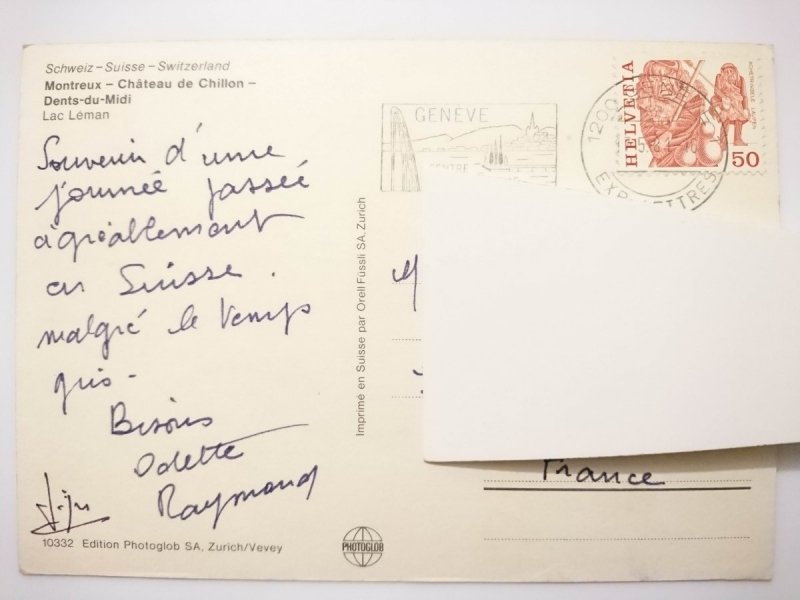 Schweiz – Suisse – Switzerland
Montreux – Château de Chillon –
Dents-du-Midi
Lac Léman
Souvenir d'une
journée passée
agréablement
en Suisse.
malgré le temps
gris.
Bisous
Odette
Raymond
10332 Edition Photoglob SA, Zurich/Vevey
Imprimé en Suisse par Orell Füssli SA, Zurich
PHOTOGLOB
GENÈVE
CENTRE
1200
EXP. LETTRES
HELVETIA
50
France